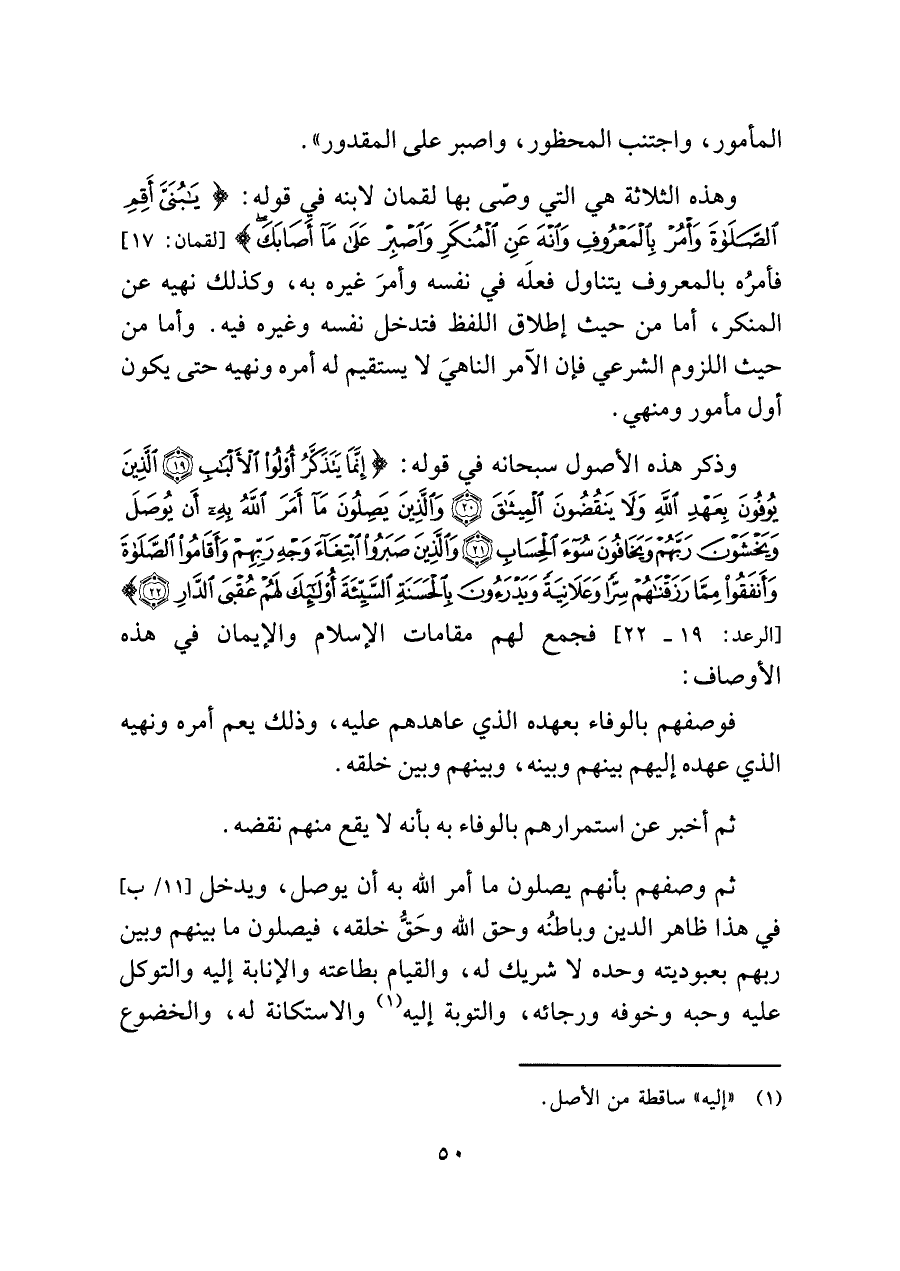 المأمور، واجتنب المحظور، واصبر على المقدور».
وهذه الثلاثة هي التي وصّى بها لقمان لابنه في قوله: ﴿ يَٰبُنَىَّ أَقِمِ
ٱلصَّلَوٰةَ وَأْمُرْ بِٱلْمَعْرُوفِ وَٱنْهَ عَنِ ٱلْمُنكَرِ وَٱصْبِرْ عَلَىٰ مَآ أَصَابَكَۖ ﴾ [لقمان: ١٧]
فأمرُه بالمعروف يتناول فعلَه في نفسه وأمرَ غيره به، وكذلك نهيه عن
المنكر، أما من حيث إطلاق اللفظ فتدخل نفسه وغيره فيه. وأما من
حيث اللزوم الشرعي فإن الآمر الناهيَ لا يستقيم له أمره ونهيه حتى يكون
أول مأمور ومنهي.
وذكر هذه الأصول سبحانه في قوله: ﴿ إِنَّمَا يَتَذَكَّرُ أُو۟لُوا۟ ٱلْأَلْبَٰبِ ١٩ ٱلَّذِينَ
يُوفُونَ بِعَهْدِ ٱللَّهِ وَلَا يَنقُضُونَ ٱلْمِيثَٰقَ ٢٠ وَٱلَّذِينَ يَصِلُونَ مَآ أَمَرَ ٱللَّهُ بِهِۦٓ أَن يُوصَلَ
وَيَخْشَوْنَ رَبَّهُمْ وَيَخَافُونَ سُوٓءَ ٱلْحِسَابِ ٢١ وَٱلَّذِينَ صَبَرُوا۟ ٱبْتِغَآءَ وَجْهِ رَبِّهِمْ وَأَقَامُوا۟ ٱلصَّلَوٰةَ
وَأَنفَقُوا۟ مِمَّا رَزَقْنَٰهُمْ سِرًّا وَعَلَانِيَةً وَيَدْرَءُونَ بِٱلْحَسَنَةِ ٱلسَّيِّئَةَ أُو۟لَٰٓئِكَ لَهُمْ عُقْبَى ٱلدَّارِ ٢٢ ﴾
[الرعد: ١٩ ـ ٢٢] فجمع لهم مقامات الإسلام والإيمان في هذه
الأوصاف:
فوصفهم بالوفاء بعهده الذي عاهدهم عليه، وذلك يعم أمره ونهيه
الذي عهده إليهم بينهم وبينه، وبينهم وبين خلقه.
ثم أخبر عن استمرارهم بالوفاء به بأنه لا يقع منهم نقضه.
ثم وصفهم بأنهم يصلون ما أمر الله به أن يوصل، ويدخل [١١/ ب]
في هذا ظاهر الدين وباطنُه وحق الله وحَقُّ خلقه، فيصلون ما بينهم وبين
ربهم بعبوديته وحده لا شريك له، والقيام بطاعته والإنابة إليه والتوكل
عليه وحبه وخوفه ورجائه، والتوبة إليه(١) والاستكانة له، والخضوع
(١) «إليه» ساقطة من الأصل.
٥٠